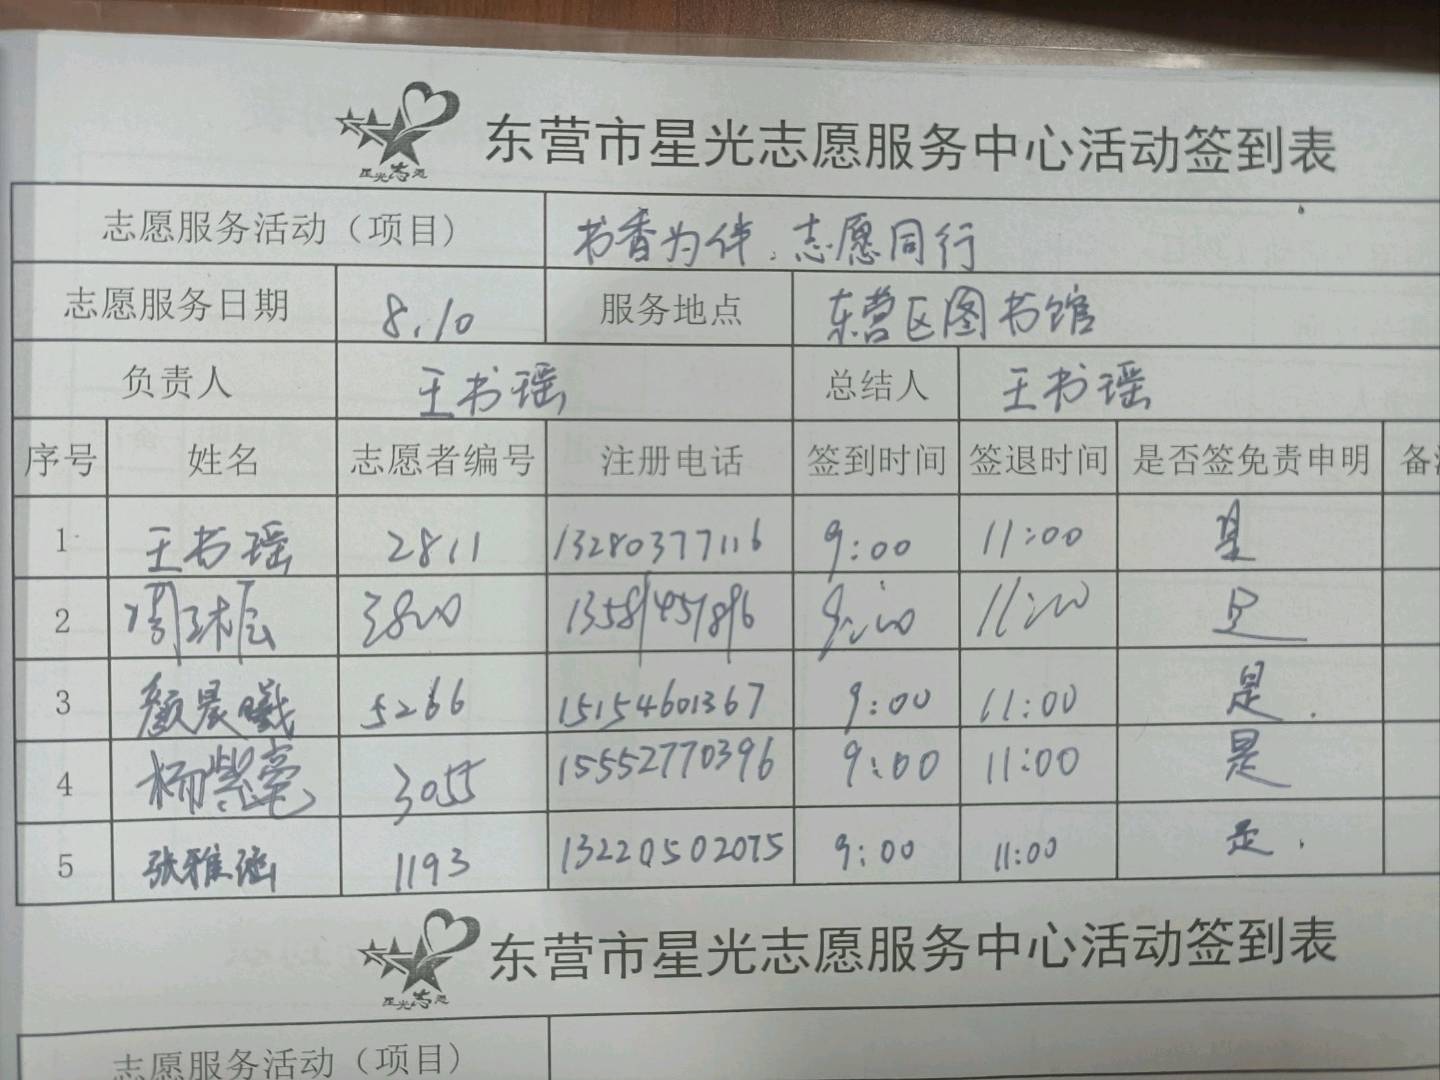 星光志愿
东营市星光志愿服务中心活动签到表
志愿服务活动（项目） 书香为伴，志愿同行
志愿服务日期 8.10 服务地点 东营区图书馆
负责人 王书瑶 总结人 王书瑶
序号 姓名 志愿者编号 注册电话 签到时间 签退时间 是否签免责申明
1 王书瑶 2811 13280377116 9:00 11:00 是
2 3800 9:00 11:00 是
3 颜晨曦 5266 15154601367 9:00 11:00 是
4 杨紫毫 3055 15552770396 9:00 11:00 是
5 张雅涵 1193 13220502075 9:00 11:00 是
星光志愿
东营市星光志愿服务中心活动签到表
志愿服务活动（项目）